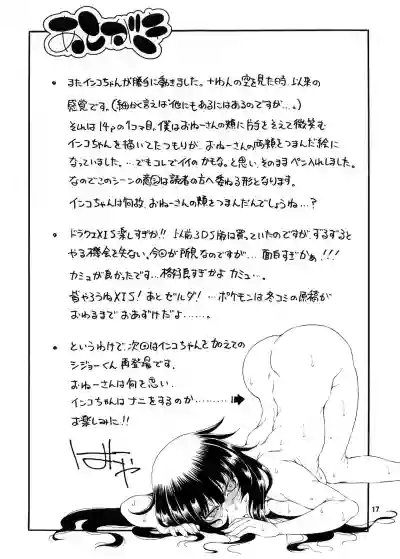 あとがき
• またインコちゃんが勝手に動きました。十わんの空を見た時以来の
感覚です。(細かく言えば他にもあるにはあるのですが…。)
それは14Pの1コマ目。僕はおねーさんの頬に片手をそえて微笑む
インコちゃんを描いてたつもりが、おねーさんの両頬をつまんだ絵に
なっていました。…でもコレでイイのかもな。と思い、そのままペン入れしました。
なのでこのシーンの意図は読者の方へ委ねる形となります。
インコちゃんは何故、おねーさんの頬をつまんだんでしょうね…?
• ドラクエXIS楽しすぎか!! 以前3DS版は買っていたのですが、ずるずると
やる機会を失ない、今回が所見なのですが…面白すぎかぁ!!!
カミュが良かったです…格好良すぎかよカミュ…。
皆やろうねXIS! あとゼルダ! …ポケモンは冬コミの原稿が
おわるまでおあずけだよ……。
• というわけで、次回はインコちゃんを加えての
シジョーくん再登場です。
おねーさんは何を思い
インコちゃんはナニをするのか………
お楽しみに!!
17